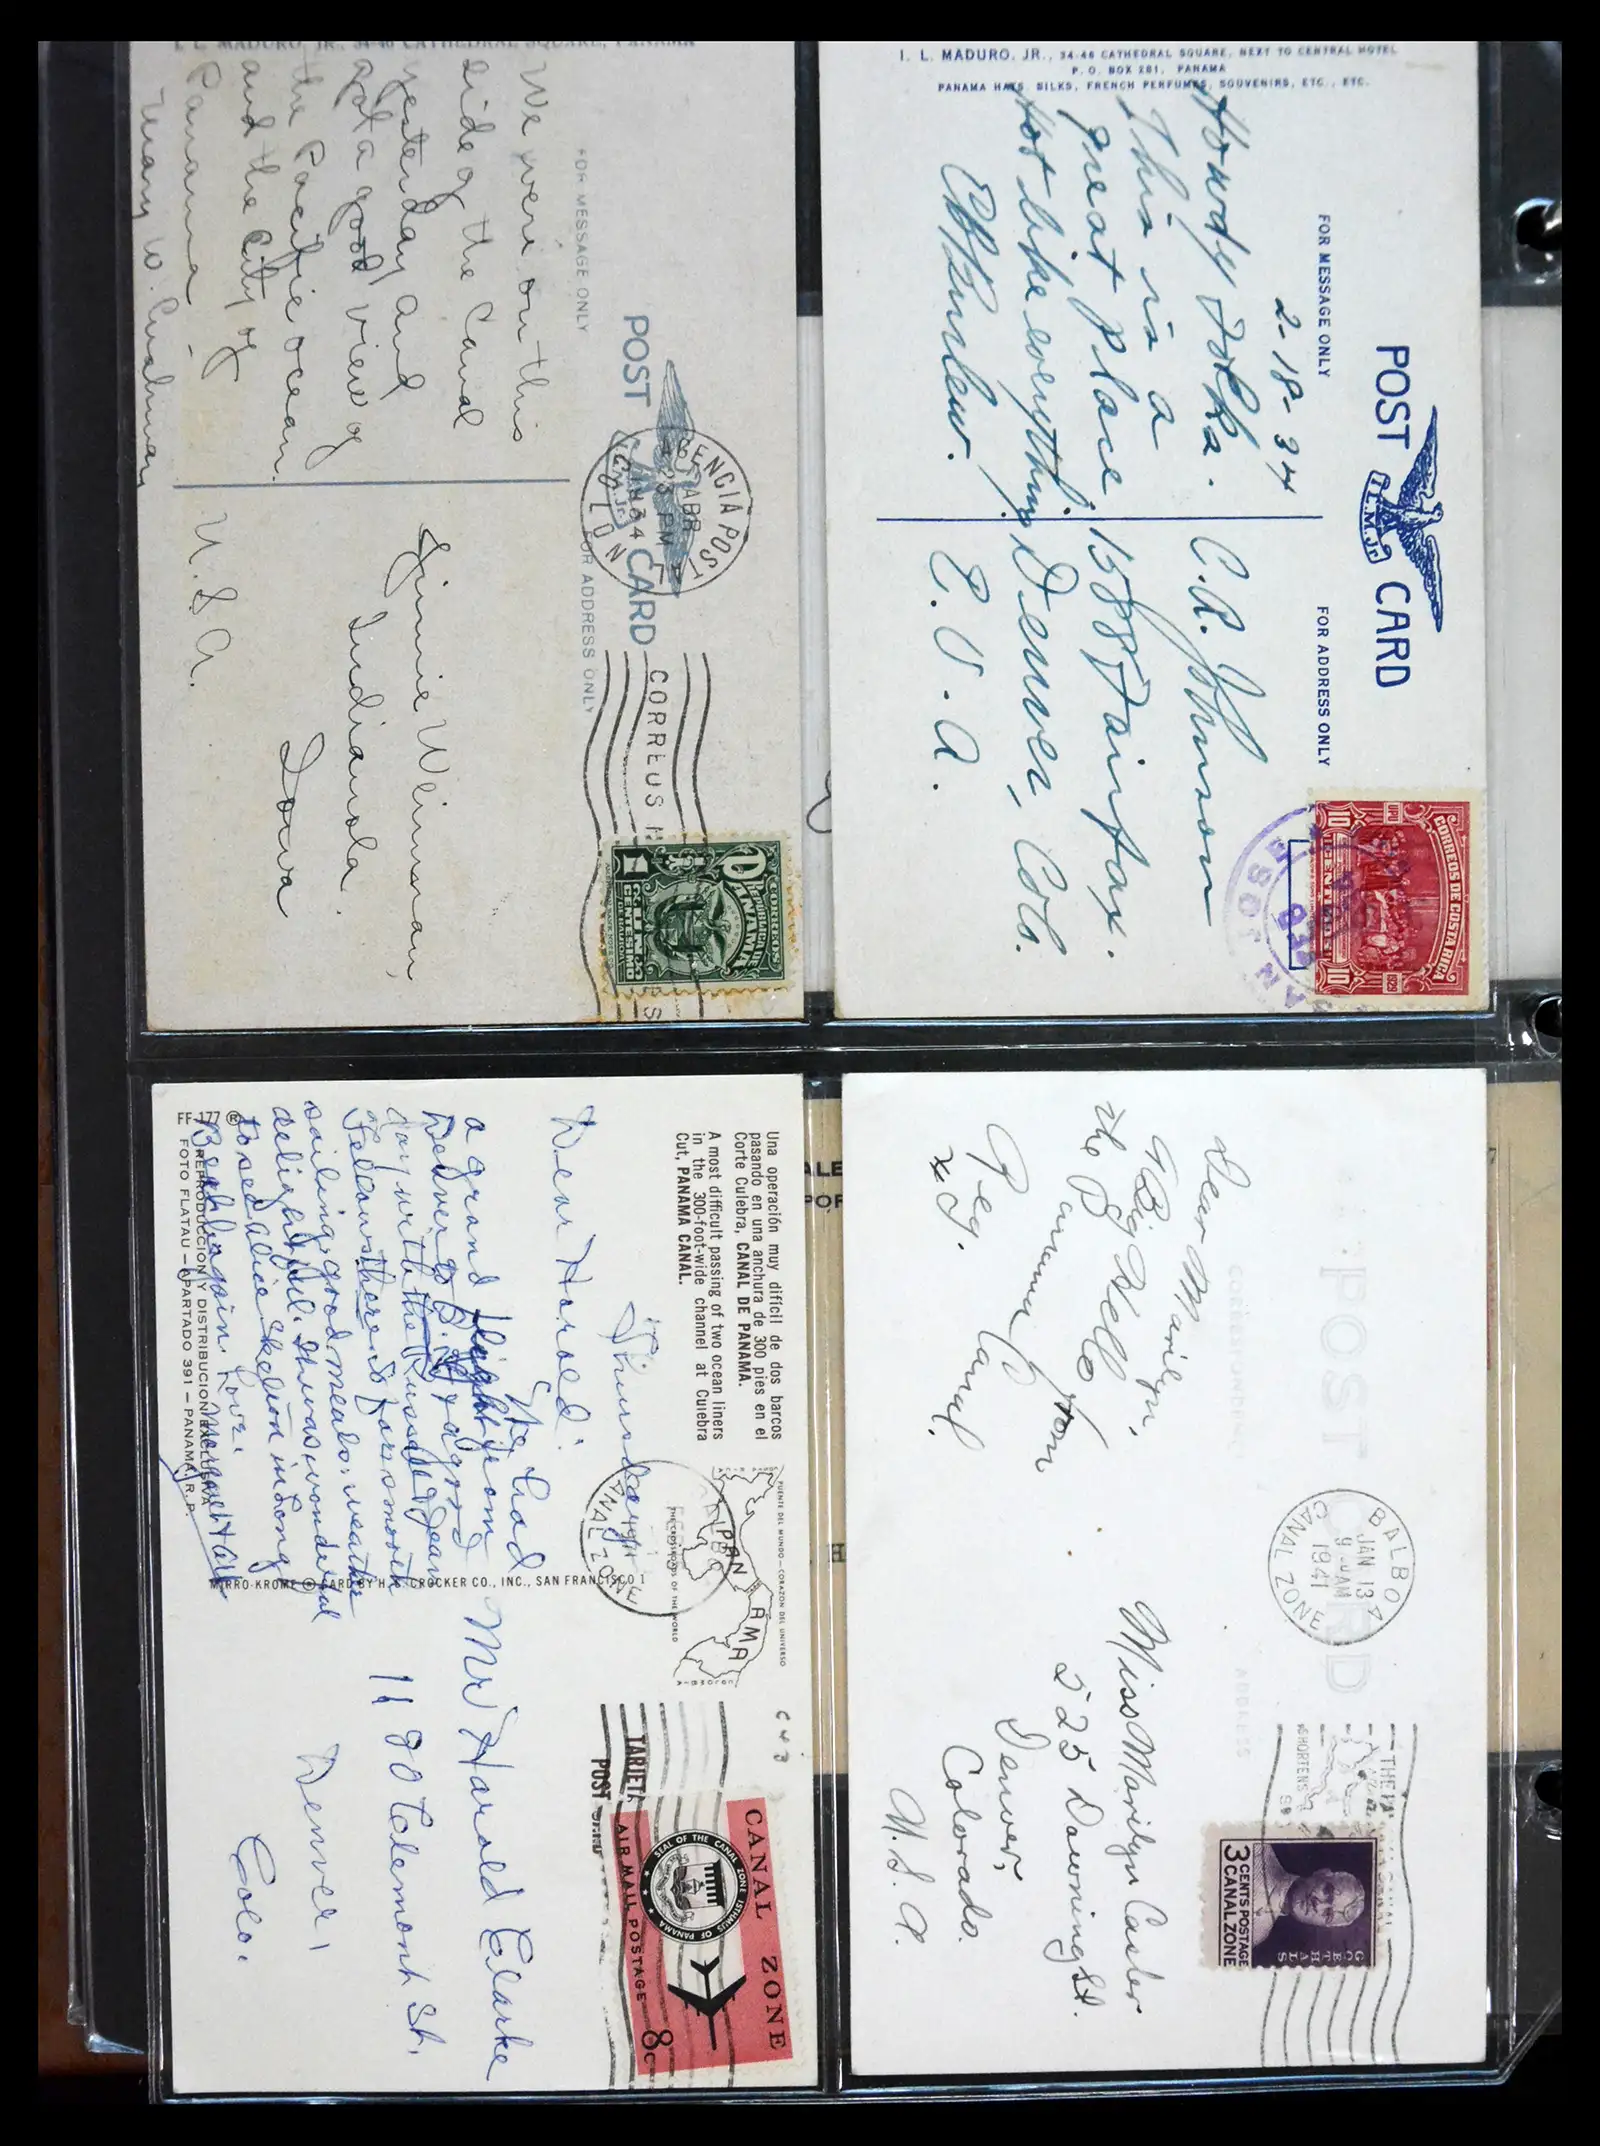 I. L. MADURO, JR., 34-46 CATHEDRAL SQUARE, PANAMA
FOR MESSAGE ONLY
POST CARD
FOR ADDRESS ONLY
We were on this
side of the Canal
yesterday and
got a good view of
the Pacific ocean
and the City of
Panama -
Mary W. Cushman
Jimmie
Indianola
Iowa
U.S.A.
COLON
CORREOS
CORREOS
REPUBLICA DE
PANAMA
UN CENTESIMO
I. L. MADURO, JR., 34-46 CATHEDRAL SQUARE, NEXT TO CENTRAL HOTEL
P. O. BOX 281, PANAMA
PANAMA HATS, SILKS, FRENCH PERFUMES, SOUVENIRS, ETC., ETC.
FOR MESSAGE ONLY
POST CARD
I.L.M.Jr.
FOR ADDRESS ONLY
2-18-34
Howdy Folks.
This is a
great place
but like everything
C. A. Johnson
1588 Fairfax.
Denver, Colo.
E.U.A.
SAN JOSE
FEB
CORREOS DE COSTA RICA
10 CENTIMOS 10
Una operación muy difícil de dos barcos
pasando en una anchura de 300 pies en el
Corte Culebra, CANAL DE PANAMA.
A most difficult passing of two ocean liners
in the 300-foot-wide channel at Culebra
Cut, PANAMA CANAL.
PUENTE DEL MUNDO—CORAZON DEL UNIVERSO
PANAMA
THE CROSSROADS OF THE WORLD
Thursday
Dear Harold:
We had
a grand flight from
Denver to
sailing, good meals, weather
delightful. It was wonderful
to see Alice Skelton in Long
Beach again. Love.
FF-177 ®
REPRODUCCION Y DISTRIBUCION EXCLUSIVA
FOTO FLATAU—APARTADO 391—PANAMA, R. P.
MIRRO-KROME ® CARD BY H. S. CROCKER CO., INC., SAN FRANCISCO 1
Mr Harold Clarke
1180 Belmont St.
Denver,
Colo.
C43
TARJETA
POST CARD
CANAL ZONE
SEAL OF THE CANAL ZONE ISTHMUS OF PANAMA
AIR MAIL POSTAGE
8c
POST CARD
CORRESPONDENCE
ADDRESS
Dear Marilyn,
A Big Hello from
the Panama Canal.
Peg.
BALBOA
JAN 13
9 AM
1941
CANAL ZONE
Miss Marilyn Casler
225 Downing St.
Denver,
Colorado.
U.S.A.
3 CENTS POSTAGE
CANAL ZONE
GOETHALS